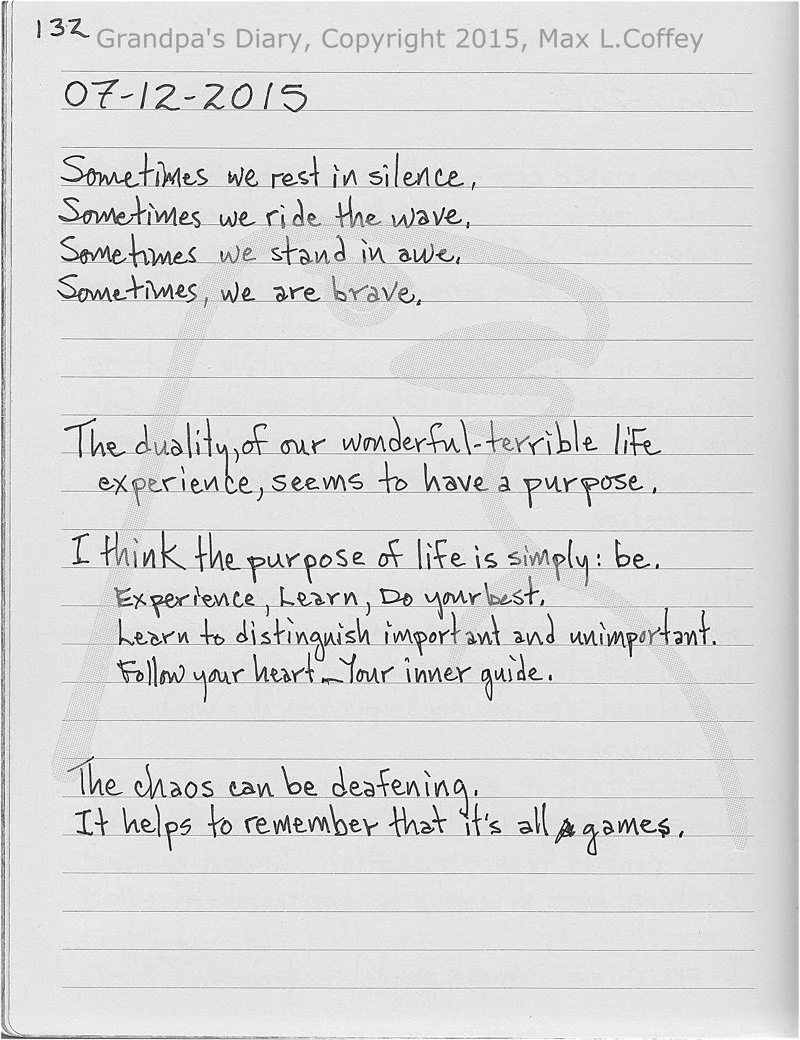 132 Grandpa's Diary, Copyright 2015, Max L.Coffey
07-12-2015
Sometimes we rest in silence,
Sometimes we ride the wave,
Sometimes we stand in awe,
Sometimes, we are brave.
The duality, of our wonderful-terrible life
experience, seems to have a purpose.
I think the purpose of life is simply: be.
Experience, Learn, Do your best.
Learn to distinguish important and unimportant.
Follow your heart - Your inner guide.
The chaos can be deafening.
It helps to remember that it's all games.